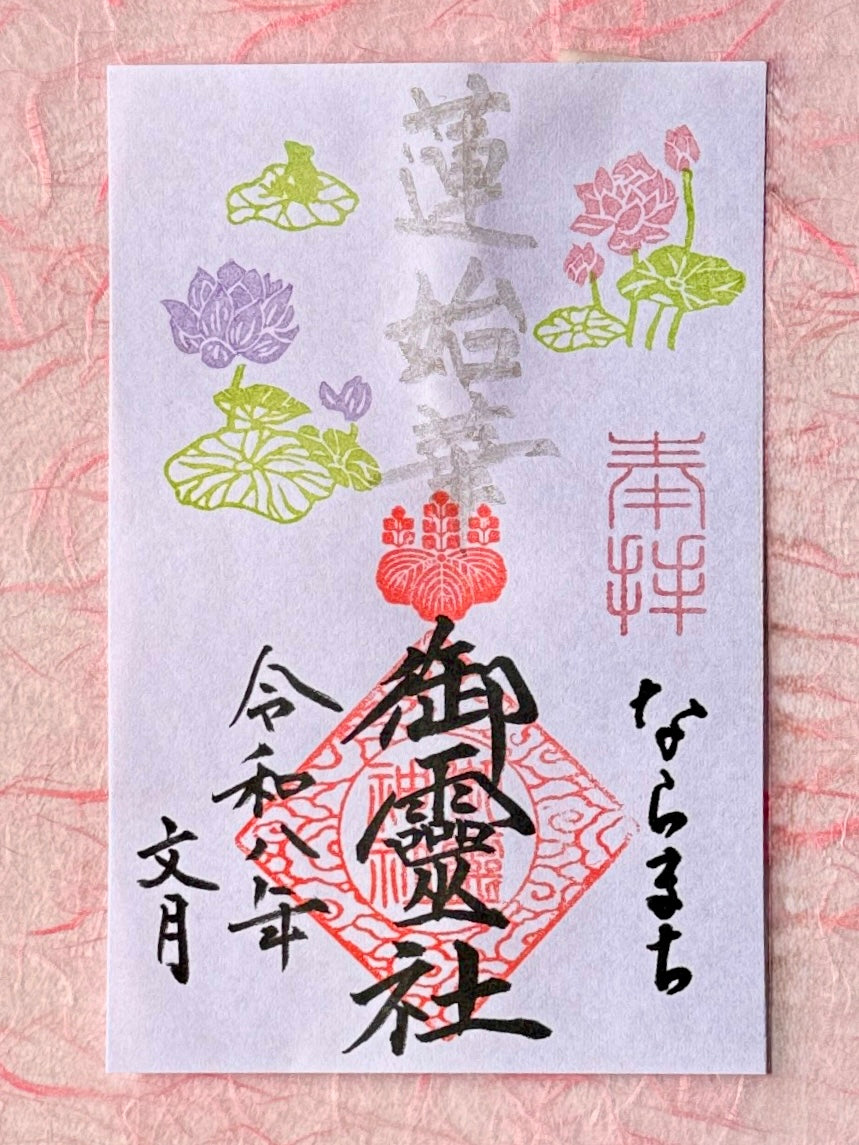 奉拝
ならまち
蓮始華
御靈社
御靈神社
令和八年
文月